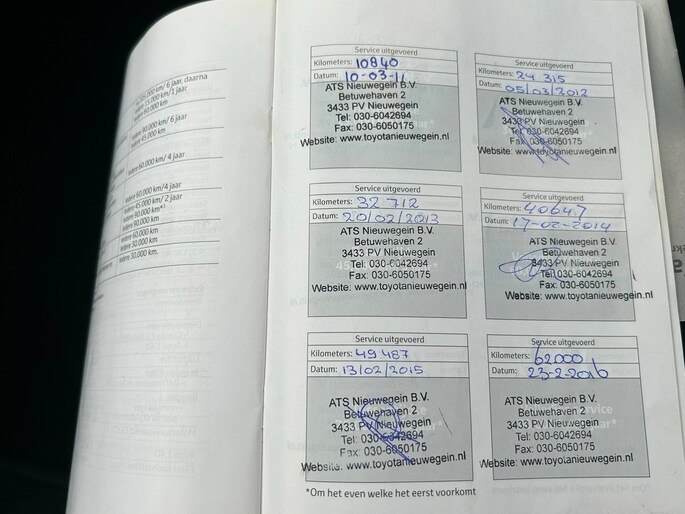 000 km/ 6 jaar, daarna
15.000 km/1 jaar
90.000 km
Iedere 90.000 km/ 6 jaar
Iedere 45.000 km
Iedere 60.000 km/ 4 jaar
Iedere 60.000 km/4 jaar
Iedere 45.000 km/ 2 jaar
Iedere 90.000 km*¹
Iedere 90.000 km
Iedere 60.000 km
Iedere 30.000 km
Iedere 30.000 km.
Service uitgevoerd
Kilometers: 10840
Datum: 10-03-11
ATS Nieuwegein B.V.
Betuwehaven 2
3433 PV Nieuwegein
Tel: 030-6042694
Fax: 030-6050175
Website: www.toyotanieuwegein.nl
Service uitgevoerd
Kilometers: 24 315
Datum: 05/03/2012
ATS Nieuwegein B.V.
Betuwehaven 2
3433 PV Nieuwegein
Tel: 030-6042694
Fax: 030-6050175
Website: www.toyotanieuwegein.nl
Service uitgevoerd
Kilometers: 32 712
Datum: 20/02/2013
ATS Nieuwegein B.V.
Betuwehaven 2
3433 PV Nieuwegein
Tel: 030-6042694
Fax: 030-6050175
Website: www.toyotanieuwegein.nl
Service uitgevoerd
Kilometers: 40647
Datum: 17-02-2014
ATS Nieuwegein B.V.
Betuwehaven 2
3433 PV Nieuwegein
Tel: 030-6042694
Fax: 030-6050175
Website: www.toyotanieuwegein.nl
Service uitgevoerd
Kilometers: 49 487
Datum: 13/02/2015
ATS Nieuwegein B.V.
Betuwehaven 2
3433 PV Nieuwegein
Tel: 030-6042694
Fax: 030-6050175
Website: www.toyotanieuwegein.nl
Service uitgevoerd
Kilometers: 62000
Datum: 23-2-2016
ATS Nieuwegein B.V.
Betuwehaven 2
3433 PV Nieuwegein
Tel: 030-6042694
Fax: 030-6050175
Website: www.toyotanieuwegein.nl
*Om het even welke het eerst voorkomt